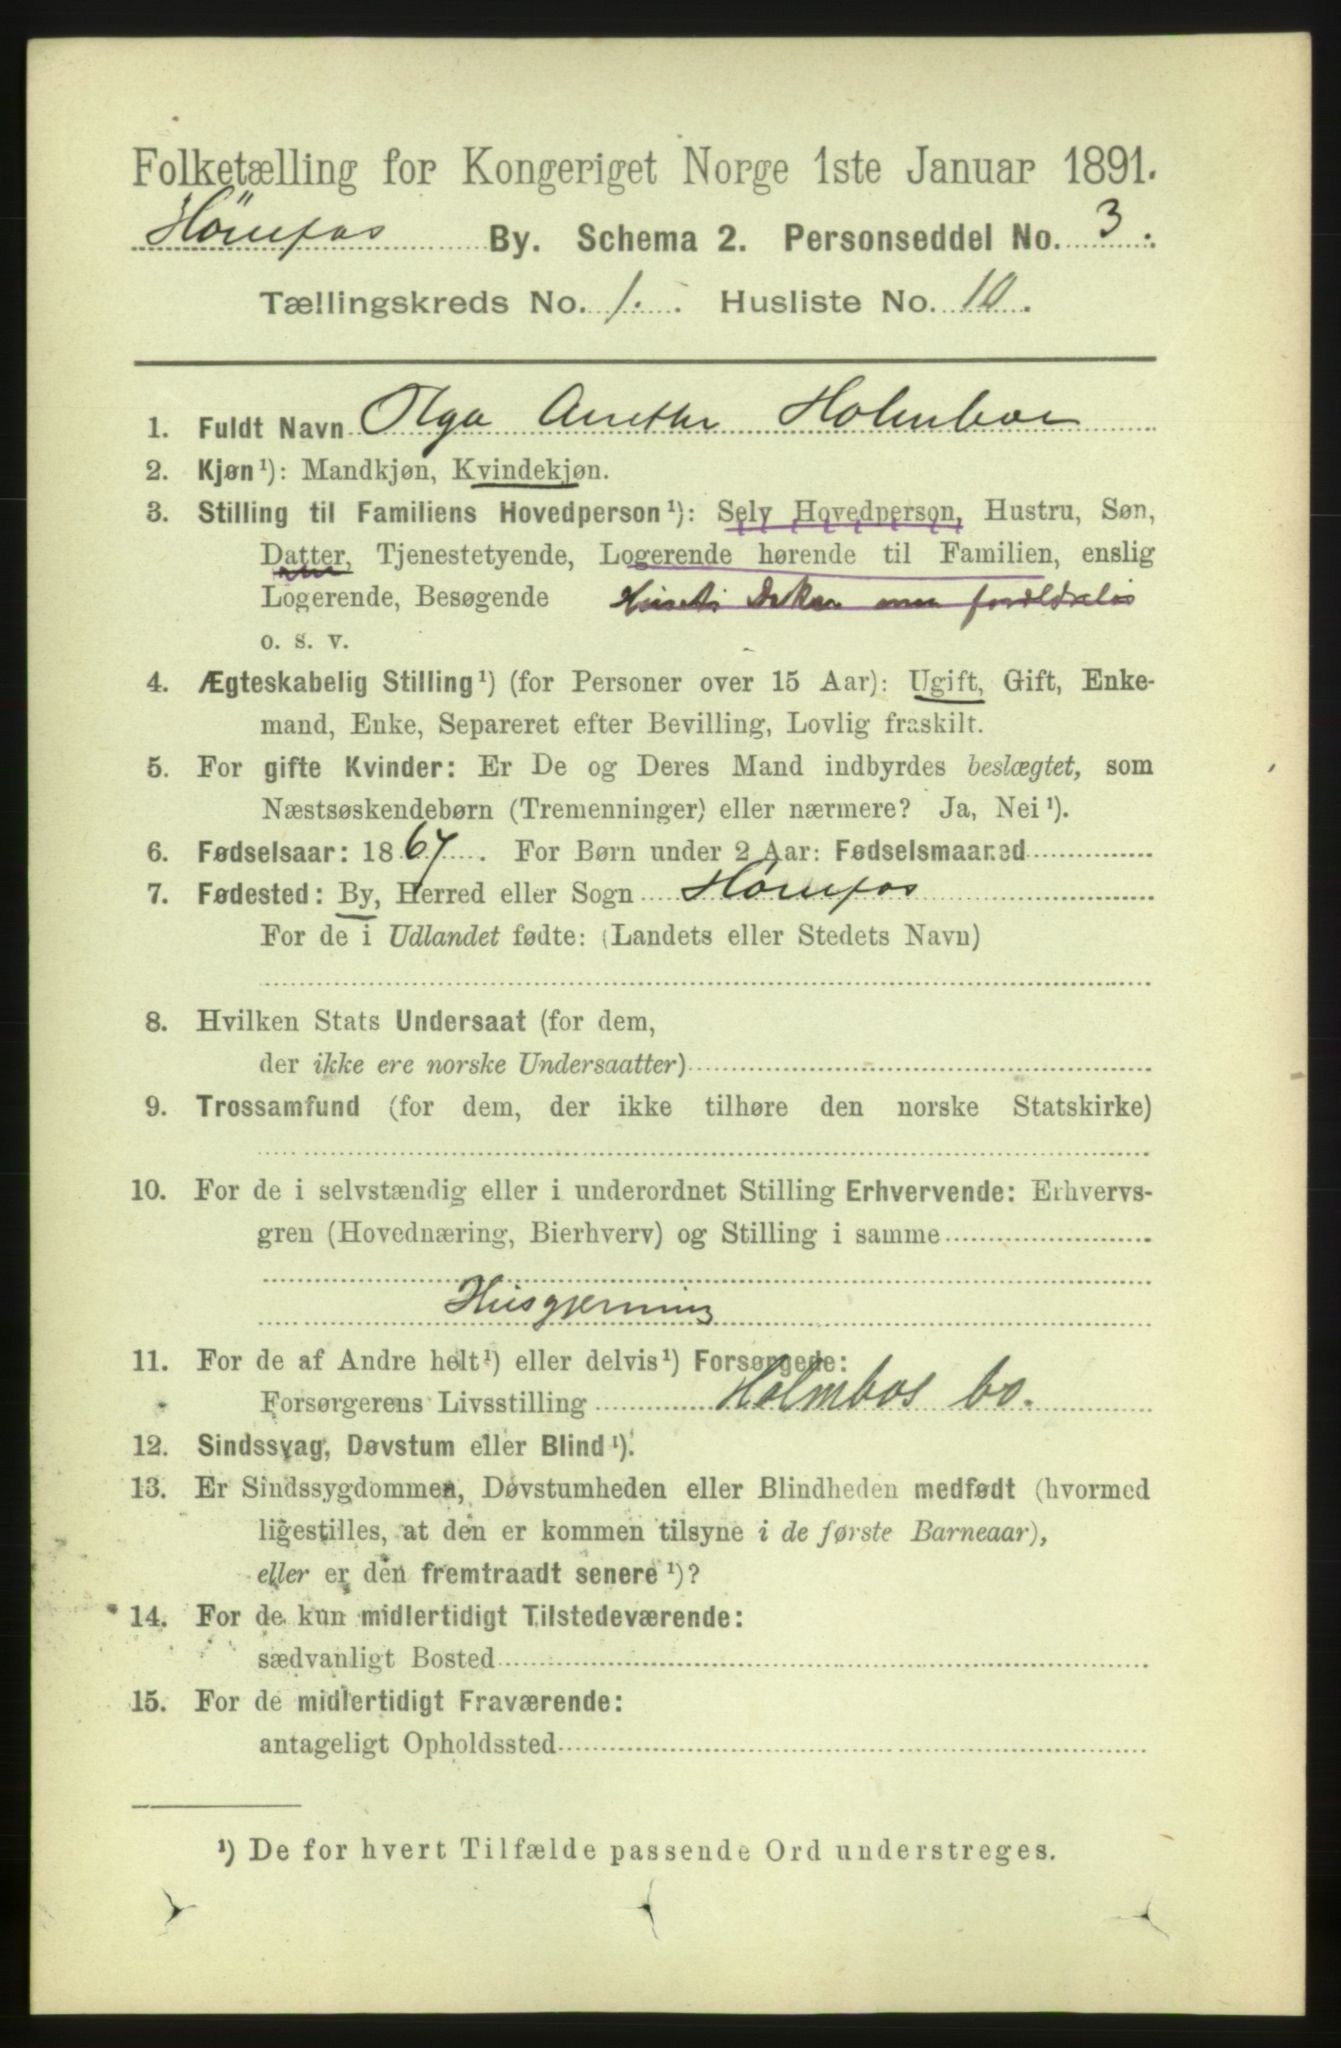 Folketælling for Kongeriget Norge 1ste Januar 1891.
Hönefos By. Schema 2. Personseddel No. 3.
Tællingskreds No. 1. Husliste No. 10.
1. Fuldt Navn Olga Anethe Holmboe
2. Kjøn¹): Mandkjøn, Kvindekjøn.
3. Stilling til Familiens Hovedperson¹): Selv Hovedperson, Hustru, Søn,
Datter, Tjenestetyende, Logerende hørende til Familien, enslig
Logerende, Besøgende
o. s. v.
4. Ægteskabelig Stilling¹) (for Personer over 15 Aar): Ugift, Gift, Enke-
mand, Enke, Separeret efter Bevilling, Lovlig fraskilt.
5. For gifte Kvinder: Er De og Deres Mand indbyrdes beslægtet, som
Næstsøskendebørn (Tremenninger) eller nærmere? Ja, Nei¹).
6. Fødselsaar: 1867. For Børn under 2 Aar: Fødselsmaaned
7. Fødested: By, Herred eller Sogn Hönefos
For de i Udlandet fødte: (Landets eller Stedets Navn)
8. Hvilken Stats Undersaat (for dem,
der ikke ere norske Undersaatter)
9. Trossamfund (for dem, der ikke tilhøre den norske Statskirke)
10. For de i selvstændig eller i underordnet Stilling Erhvervende: Erhvervs-
gren (Hovednæring, Bierhverv) og Stilling i samme
Husgjerning
11. For de af Andre helt¹) eller delvis¹) Forsørgede:
Forsørgerens Livsstilling Holmbos bo.
12. Sindssyag, Døvstum eller Blind¹).
13. Er Sindssygdommen, Døvstumheden eller Blindheden medfødt (hvormed
ligestilles, at den er kommen tilsyne i de første Barneaar),
eller er den fremtraadt senere¹)?
14. For de kun midlertidigt Tilstedeværende:
sædvanligt Bosted
15. For de midlertidigt Fraværende:
antageligt Opholdssted
¹) De for hvert Tilfælde passende Ord understreges.